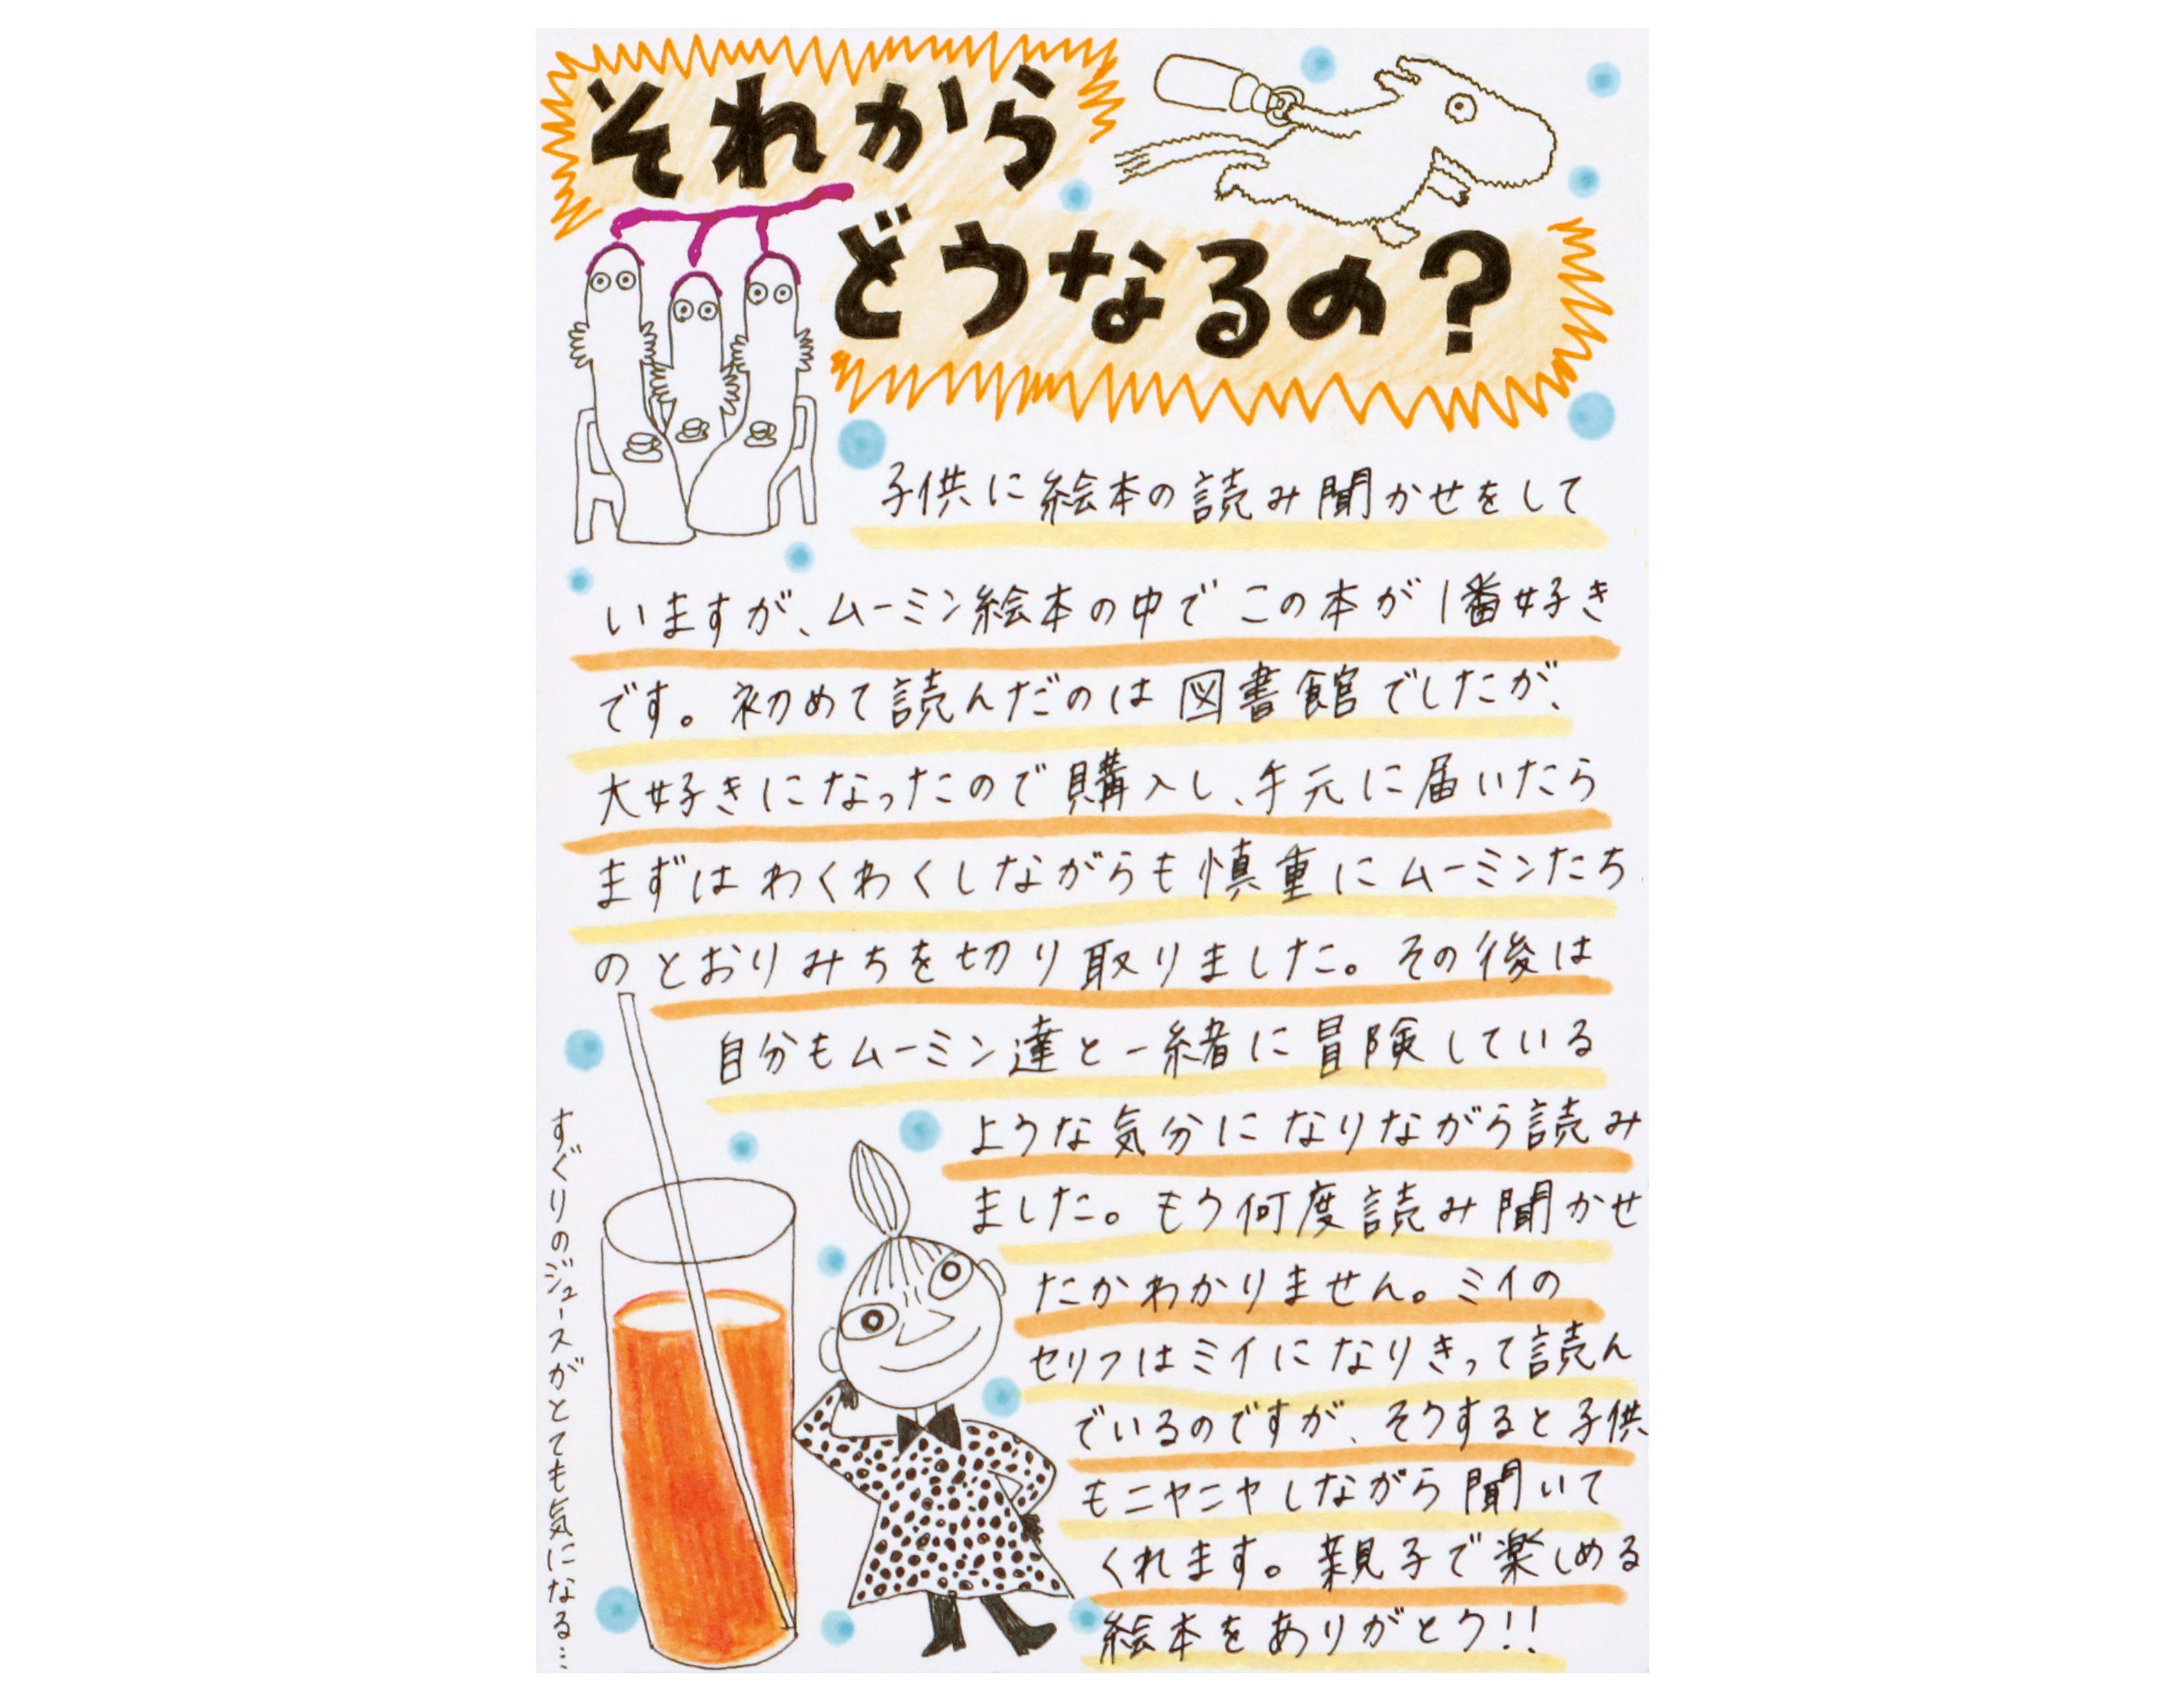 それから
どうなるの？
子供に絵本の読み聞かせをして
いますが、ムーミン絵本の中でこの本が1番好き
です。初めて読んだのは図書館でしたが、
大好きになったので購入し、手元に届いたら
まずはわくわくしながらも慎重にムーミンたち
のとおりみちを切り取りました。その後は
自分もムーミン達と一緒に冒険している
ような気分になりながら読み
ました。もう何度読み聞かせ
たかわかりません。ミイの
セリフはミイになりきって読ん
でいるのですが、そうすると子供
もニヤニヤしながら聞いて
くれます。親子で楽しめる
絵本をありがとう!!
すぐりのジュースがとても気になる…